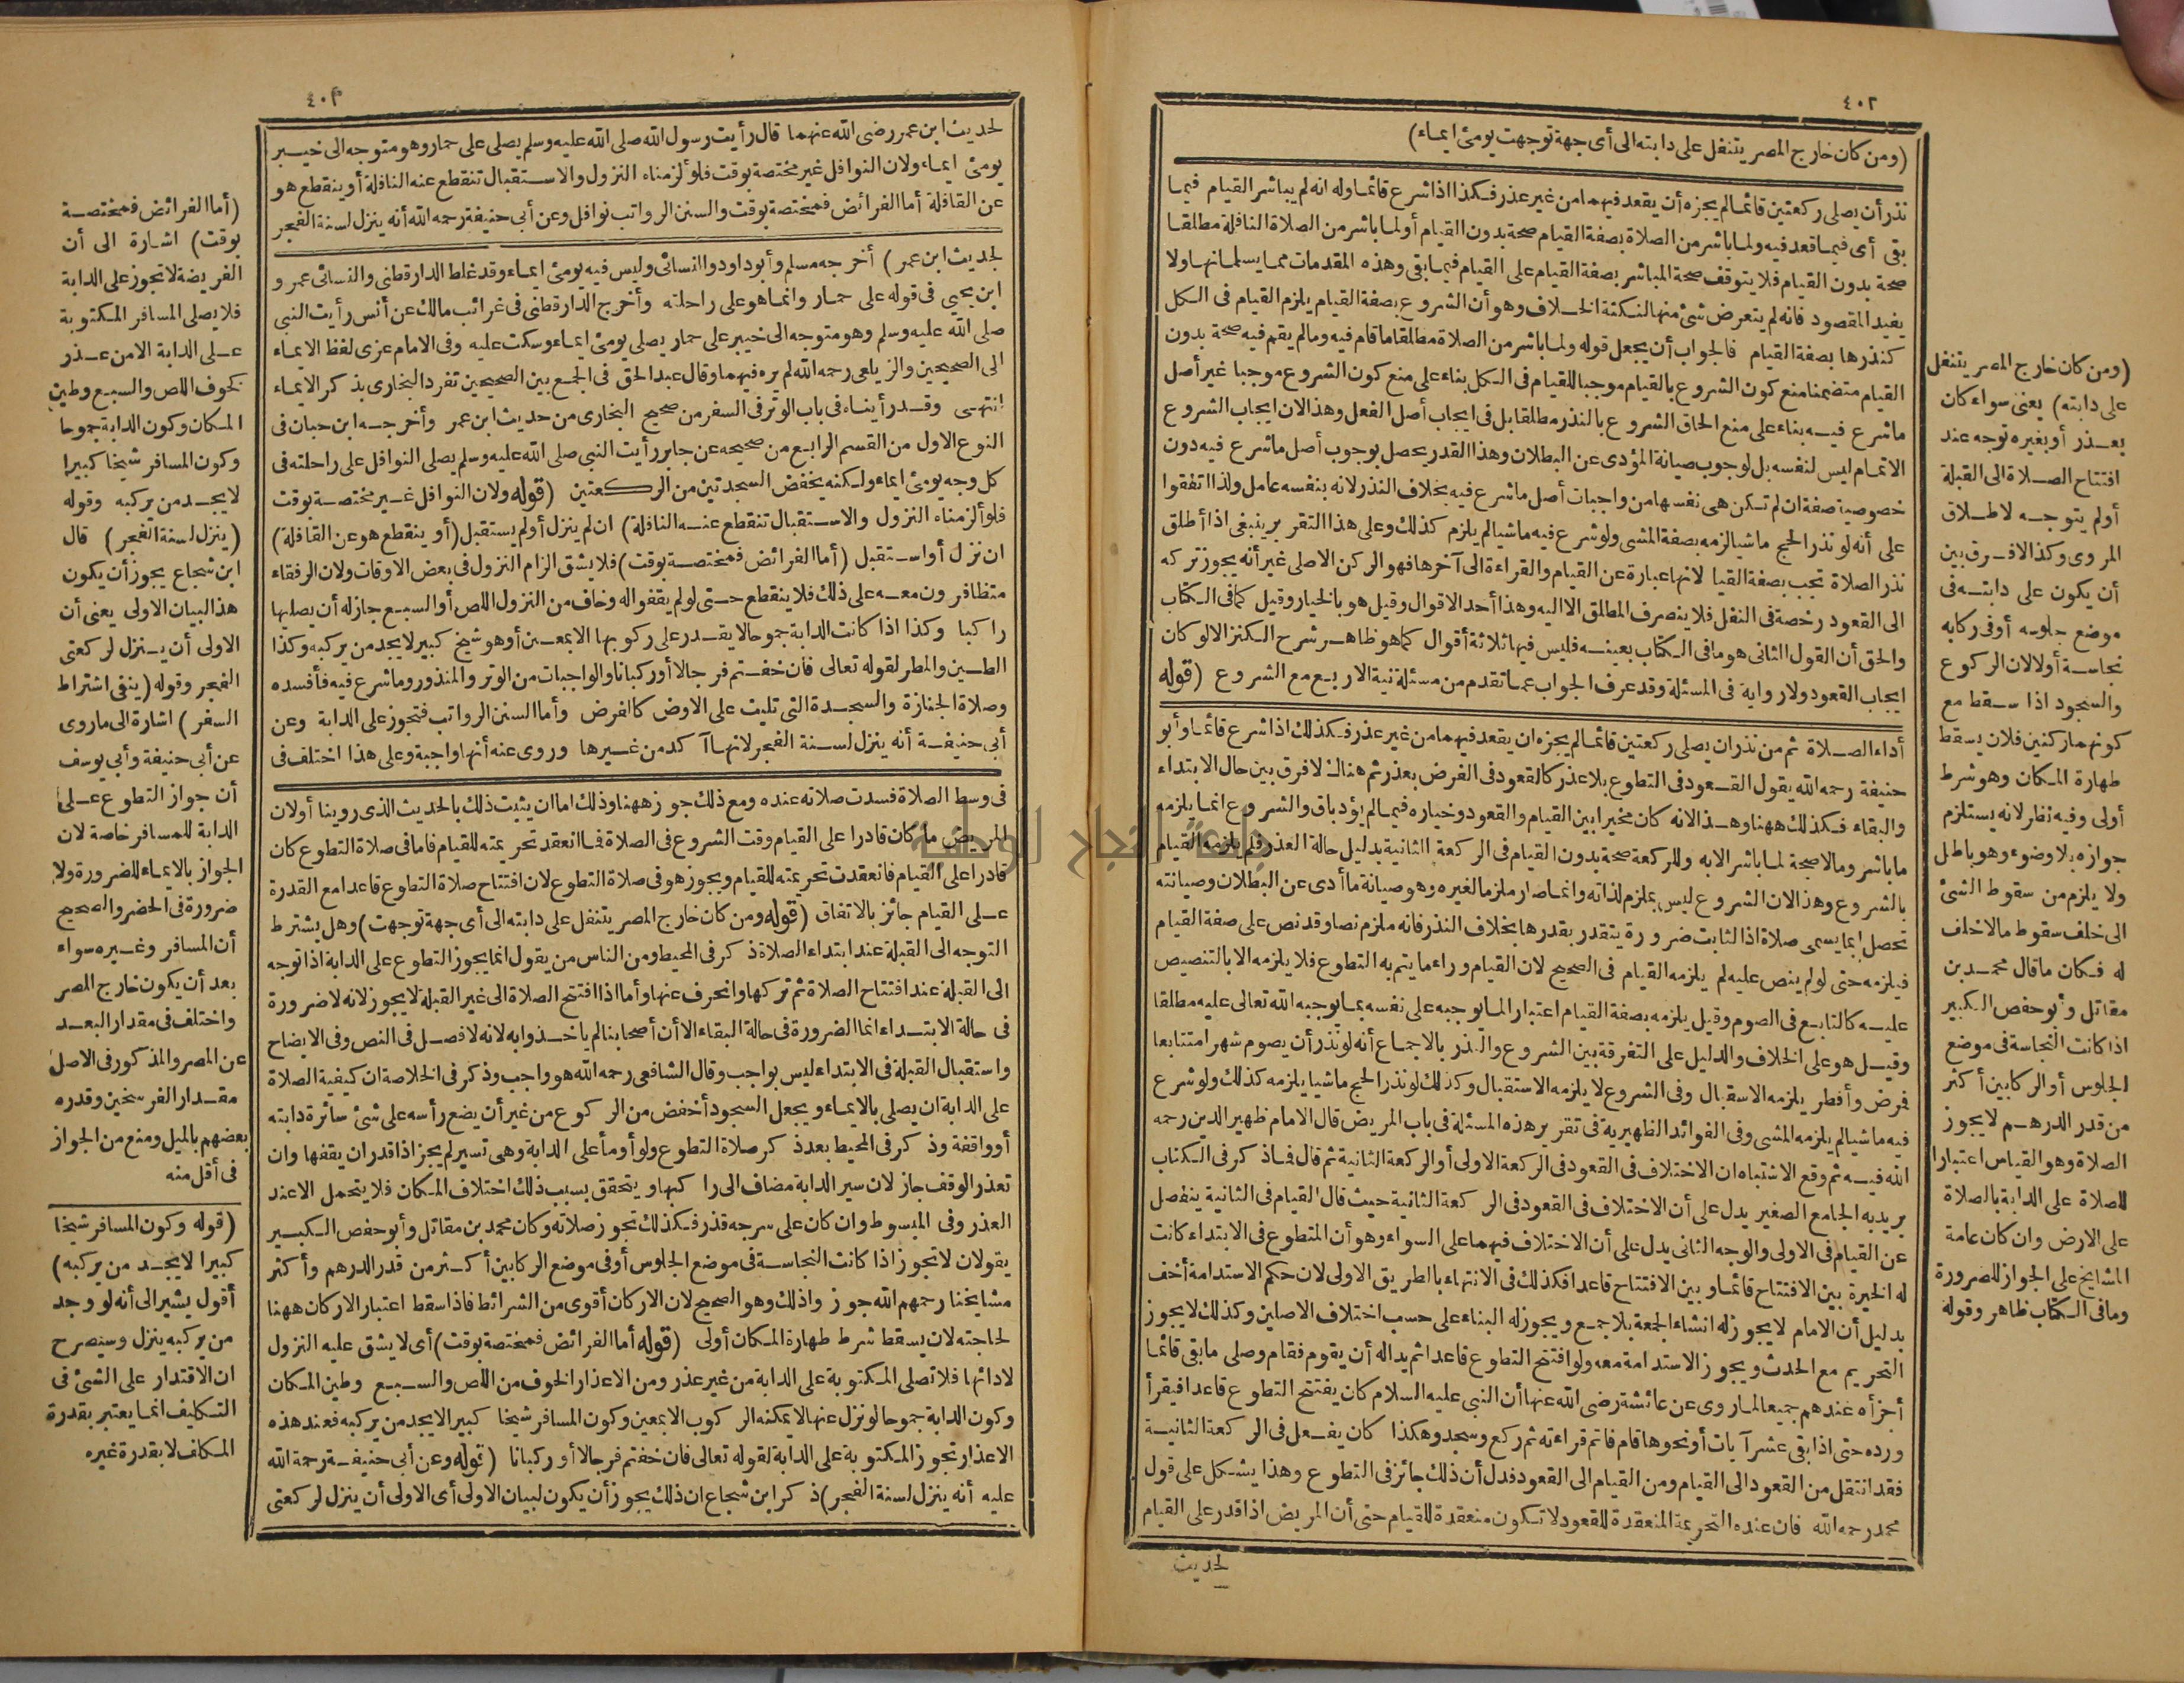 ٤٠٢
(ومن كان خارج المصر يتنفل على دابته الى أى جهة توجهت يومئ ايماء)
نذر أن يصلى ركعتين قائما لم يجزه أن يقعد فيهما من غير عذر فكذا اذا شرع قائما وله انه لم يباشر القيام فيما
بقى أى فيما قعد فيه ولما باشر من الصلاة بصفة القيام صحة بدون القيام أو لما باشر من الصلاة النافلة مطلقا
صحة بدون القيام فلا يتوقف صحة المباشر بصفة القيام على القيام فيما بقى وهذه المقدمات مما يسلمانها ولا
يفيد المقصود فانه لم يتعرض شئ منها لنكتة الخلاف وهو أن الشروع بصفة القيام يلزم القيام فى الكل
كنذرها بصفة القيام فالجواب أن يجعل قوله ولما باشر من الصلاة مطلقا ما قام فيه وما لم يقم فيه صحة بدون
القيام متضمنا منع كون الشروع بالقيام موجبا للقيام فى الكل بناء على منع كون الشروع موجبا غير أصل
ما شرع فيه بناء على منع الحاق الشروع بالنذر مطلقا بل فى ايجاب أصل الفعل وهذا لان ايجاب الشروع
الاتمام ليس لنفسه بل لوجوب صيانة المؤدى عن البطلان وهذا القدر يحصل بوجوب أصل ما شرع فيه دون
خصوصية صفة ان لم تكن هى نفسها من واجبات أصل ما شرع فيه بخلاف النذر لانه بنفسه عامل ولذا اتفقوا
على أنه لو نذر الحج ماشيا لزمه بصفة المشى ولو شرع فيه ماشيا لم يلزم كذلك وعلى هذا التقرير ينبغى اذا أطلق
نذر الصلاة تجب بصفة القيا لانها عبارة عن القيام والقراءة الى آخرها فهو الركن الاصلى غير أنه يجوز تركه
الى القعود رخصة فى النفل فلا ينصرف المطلق الا اليه وهذا أحد الاقوال وقيل هو بالخيار وقيل كما فى الكتاب
والحق أن القول الثانى هو ما فى الكتاب بعينه فليس فيها ثلاثة أقوال كما هو ظاهر شرح الكنز الا لو كان
ايجاب القعود ولا رواية فى المسئلة وقد عرف الجواب عما تقدم من مسئلة نية الاربع مع الشروع (قوله
أداء الصلاة ثم من نذر ان يصلى ركعتين قائما لم يجزه ان يقعد فيهما من غير عذر فكذلك اذا شرع قائما وأبو
حنيفة رحمه الله يقول القعود فى التطوع بلا عذر كالقعود فى الفرض بعذر ثم هناك لا فرق بين حال الابتداء
والبقاء فكذلك ههنا وهذا لانه كان مخيرا بين القيام والقعود وخياره فيما لم يؤد باق والشروع انما يلزمه
ما باشر وما لا صحة لما باشر الا به وللركعة صحة بدون القيام فى الركعة الثانية بدليل حالة العذر فلم يلزمه القيام
بالشروع وهذا لان الشروع ليس بملزم لذاته وانما صار ملزما لغيره وهو صيانة ما أدى عن البطلان وصيانته
تحصل بما يسمى صلاة اذ الثابت ضرورة يتقدر بقدرها بخلاف النذر فانه ملزم نصا وقد نص على صفة القيام
فيلزمه حتى لو لم ينص عليه لم يلزمه القيام فى الصحيح لان القيام وراء ما يتم به التطوع فلا يلزمه الا بالتنصيص
عليه كالتتابع فى الصوم وقيل يلزمه بصفة القيام اعتبارا لما يوجبه على نفسه بما يوجبه الله تعالى عليه مطلقا
وقيل هو على الخلاف والدليل على التفرقة بين الشروع والنذر بالاجماع أنه لو نذر أن يصوم شهرا متتابعا
فمرض وأفطر يلزمه الاسقبال وفى الشروع لا يلزمه الاستقبال وكذلك لو نذر الحج ماشيا يلزمه كذلك ولو شرع
فيه ماشيا لم يلزمه المشى وفى الفوائد الظهيرية فى تقرير هذه المسئلة فى باب المريض قال الامام ظهير الدين رحمه
الله فيه ثم وقع الاشتباه ان الاختلاف فى القعود فى الركعة الاولى أو الركعة الثانية ثم قال فما ذكر فى الكتاب
يريد به الجامع الصغير يدل على أن الاختلاف فى القعود فى الركعة الثانية حيث قال القيام فى الثانية ينفصل
عن القيام فى الاولى والوجه الثانى يدل على أن الاختلاف فيهما على السواء وهو أن المتطوع فى الابتداء كانت
له الخيرة بين الافتتاح قائما وبين الافتتاح قاعدا فكذلك فى الانتهاء بالطريق الاولى لان حكم الاستدامة أخف
بدليل أن الامام لا يجوز له انشاء الجمعة بلا جمع ويجوز له البناء على حسب اختلاف الاصلين وكذلك لا يجوز
التحريم مع الحدث ويجوز الاستدامة معه ولو افتتح التطوع قاعدا ثم بدا له أن يقوم فقام وصلى ما بقى قائما
أجزأه عندهم جميعا لما روى عن عائشة رضى الله عنها أن النبى عليه السلام كان يفتتح التطوع قاعدا فيقرأ
ورده حتى اذا بقى عشر آيات أو نحوها قام فاتم قراءته ثم ركع وسجد وهكذا كان يفعل فى الركعة الثانية
فقد انتقل من القعود الى القيام ومن القيام الى القعود فدل أن ذلك جائز فى التطوع وهذا يشكل على قول
محمد رحمه الله فان عنده التحريمة المنعقدة للقعود لا تكون منعقدة للقيام حتى أن المريض اذا قدر على القيام
لحديث
(ومن كان خارج المصر يتنفل
على دابته) يعنى سواء كان
بعذر أو بغيره توجه عند
افتتاح الصلاة الى القبلة
أو لم يتوجه لاطلاق
المروى وكذا لا فرق بين
أن يكون على دابته فى
موضع جلوسه أو فى ركابه
نجاسة أولا لان الركوع
والسجود اذا سقط مع
كونهما ركنين فلان يسقط
طهارة المكان وهو شرط
أولى وفيه نظر لانه يستلزم
جوازه بلا وضوء وهو باطل
ولا يلزم من سقوط الشئ
الى خلف سقوط ما لا خلف
له فكان ما قال محمد بن
مقاتل وأبو حفص الكبير
اذا كانت النجاسة فى موضع
الجلوس أو الركابين أكثر
من قدر الدرهم لا يجوز
الصلاة وهو القياس اعتبارا
للصلاة على الدابة بالصلاة
على الارض وان كان عامة
المشايخ على الجواز للضرورة
وما فى الكتاب ظاهر وقوله
٤٠٣
لحديث ابن عمر رضى الله عنهما قال رأيت رسول الله صلى الله عليه وسلم يصلى على حمار وهو متوجه الى خيبر
يومئ ايماء ولان النوافل غير مختصة بوقت فلو ألزمناه النزول والاستقبال تنقطع عنه النافلة أو ينقطع هو
عن القافلة أما الفرائض فمختصة بوقت والسنن الرواتب نوافل وعن أبى حنيفة رحمه الله أنه ينزل لسنة الفجر
لحديث ابن عمر) أخرجه مسلم وأبو داود والنسائى وليس فيه يومئ ايماء وقد غلط الدارقطنى والنسائى عمرو
ابن يحيى فى قوله على حمار وانما هو على راحلته وأخرج الدارقطنى فى غرائب مالك عن أنس رأيت النبى
صلى الله عليه وسلم وهو متوجه الى خيبر على حمار يصلى يومئ ايماء وسكت عليه وفى الامام عزى لفظ الايماء
الى الصحيحين والزيلعى رحمه الله لم يره فيهما وقال عبد الحق فى الجمع بين الصحيحين تفرد البخارى بذكر الايماء
انتهى وقد رأيناه فى باب الوتر فى السفر من صحيح البخارى من حديث ابن عمر وأخرجه ابن حبان فى
النوع الاول من القسم الرابع من صحيحه عن جابر رأيت النبى صلى الله عليه وسلم يصلى النوافل على راحلته فى
كل وجه يومئ ايماء ولكنه يخفض السجدتين من الركعتين (قوله ولان النوافل غير مختصة بوقت
فلو ألزمناه النزول والاستقبال تنقطع عنه النافلة) ان لم ينزل أو لم يستقبل (أو ينقطع هو عن القافلة)
ان نزل أو استقبل (أما الفرائض فمختصة بوقت) فلا يشق الزام النزول فى بعض الاوقات ولان الرفقاء
متظافرون معه على ذلك فلا ينقطع حتى لو لم يقفوا له وخاف من النزول اللص أو السبع جاز له أن يصليها
راكبا وكذا اذا كانت الدابة جموحا لا يقدر على ركوبها الا بمعين أو هو شيخ كبير لا يجد من يركبه وكذا
الطين والمطر لقوله تعالى فان خفتم فرجالا أو ركبانا والواجبات من الوتر والمنذور وما شرع فيه فأفسده
وصلاة الجنازة والسجدة التى تليت على الارض كالفرض وأما السنن الرواتب فتجوز على الدابة وعن
أبى حنيفة أنه ينزل لسنة الفجر لانها آكد من غيرها وروى عنه أنها واجبة وعلى هذا اختلف فى
فى وسط الصلاة فسدت صلاته عنده ومع ذلك جوز ههنا وذلك اما ان يثبت ذلك بالحديث الذى روينا أو لان
المريض ما كان قادرا على القيام وقت الشروع فى الصلاة فما انعقد تحريمته للقيام فاما فى صلاة التطوع كان
قادرا على القيام فانعقدت تحريمته للقيام ويجوز هو فى صلاة التطوع لان افتتاح صلاة التطوع قاعدا مع القدرة
على القيام جائز بالاتفاق (قوله ومن كان خارج المصر يتنفل على دابته الى أى جهة توجهت) وهل يشترط
التوجه الى القبلة عند ابتداء الصلاة ذكر فى المحيط ومن الناس من يقول انما يجوز التطوع على الدابة اذا توجه
الى القبلة عند افتتاح الصلاة ثم تركها وانحرف عنها وأما اذا افتتح الصلاة الى غير القبلة لا يجوز لانه لا ضرورة
فى حالة الابتداء انما الضرورة فى حالة البقاء الا أن أصحابنا لم ياخذوا به لانه لا فصل فى النص وفى الايضاح
واستقبال القبلة فى الابتداء ليس بواجب وقال الشافعى رحمه الله هو واجب وذكر فى الخلاصة ان كيفية الصلاة
على الدابة ان يصلى بالايماء ويجعل السجود أخفض من الركوع من غير أن يضع رأسه على شئ سائرة دابته
أو واقفة وذكر فى المحيط بعد ذكر صلاة التطوع ولو أومأ على الدابة وهى تسير لم يجز اذا قدر ان يقفها وان
تعذر الوقف جاز لان سير الدابة مضاف الى راكبها ويتحقق بسبب ذلك اختلاف المكان فلا يتحمل الا عند
العذر وفى المبسوط وان كان على سرجه قذر فكذلك تجوز صلاته وكان محمد بن مقاتل وأبو حفص الكبير
يقولان لا تجوز اذا كانت النجاسة فى موضع الجلوس أو فى موضع الركابين أكثر من قدر الدرهم وأكثر
مشايخنا رحمهم الله جوزوا ذلك وهو الصحيح لان الاركان أقوى من الشرائط فاذا سقط اعتبار الاركان ههنا
لحاجته لان يسقط شرط طهارة المكان أولى (قوله أما الفرائض فمختصة بوقت) أى لا يشق عليه النزول
لادائها فلا تصلى المكتوبة على الدابة من غير عذر ومن الاعذار الخوف من اللص والسبع وطين المكان
وكون الدابة جموحا لو نزل عنها لا يمكنه الركوب الا بمعين وكون المسافر شيخا كبيرا لا يجد من يركبه فعند هذه
الاعذار تجوز المكتوبة على الدابة لقوله تعالى فان خفتم فرجالا أو ركبانا (قوله وعن أبى حنيفة رحمة الله
عليه أنه ينزل لسنة الفجر) ذكر ابن شجاع ان ذلك يجوز أن يكون لبيان الاولى أى الاولى أن ينزل لركعتى
(أما الفرائض فمختصة
بوقت) اشارة الى أن
الفريضة لا تجوز على الدابة
فلا يصلى المسافر المكتوبة
على الدابة الا من عذر
كخوف اللص والسبع وطين
المكان وكون الدابة جموحا
وكون المسافر شيخا كبيرا
لا يجد من يركبه وقوله
(ينزل لسنة الفجر) قال
ابن شجاع يجوز أن يكون
هذا لبيان الاولى يعنى أن
الاولى أن ينزل لركعتى
الفجر وقوله (ينفى اشتراط
السفر) اشارة الى ما روى
عن أبى حنيفة وأبى يوسف
أن جواز التطوع على
الدابة للمسافر خاصة لان
الجواز بالايماء للضرورة ولا
ضرورة فى الحضر والصحيح
أن المسافر وغيره سواء
بعد أن يكون خارج المصر
واختلف فى مقدار البعد
عن المصر والمذكور فى الاصل
مقدار الفرسخين وقدره
بعضهم بالميل ومنع من الجواز
فى أقل منه
(قوله وكون المسافر شيخا
كبيرا لا يجد من يركبه)
أقول يشير الى أنه لو وجد
من يركبه ينزل وسيصرح
ان الاقتدار على الشئ فى
التكليف انما يعتبر بقدرة
المكلف لا بقدرة غيره
جامعة النجاح الوطنية